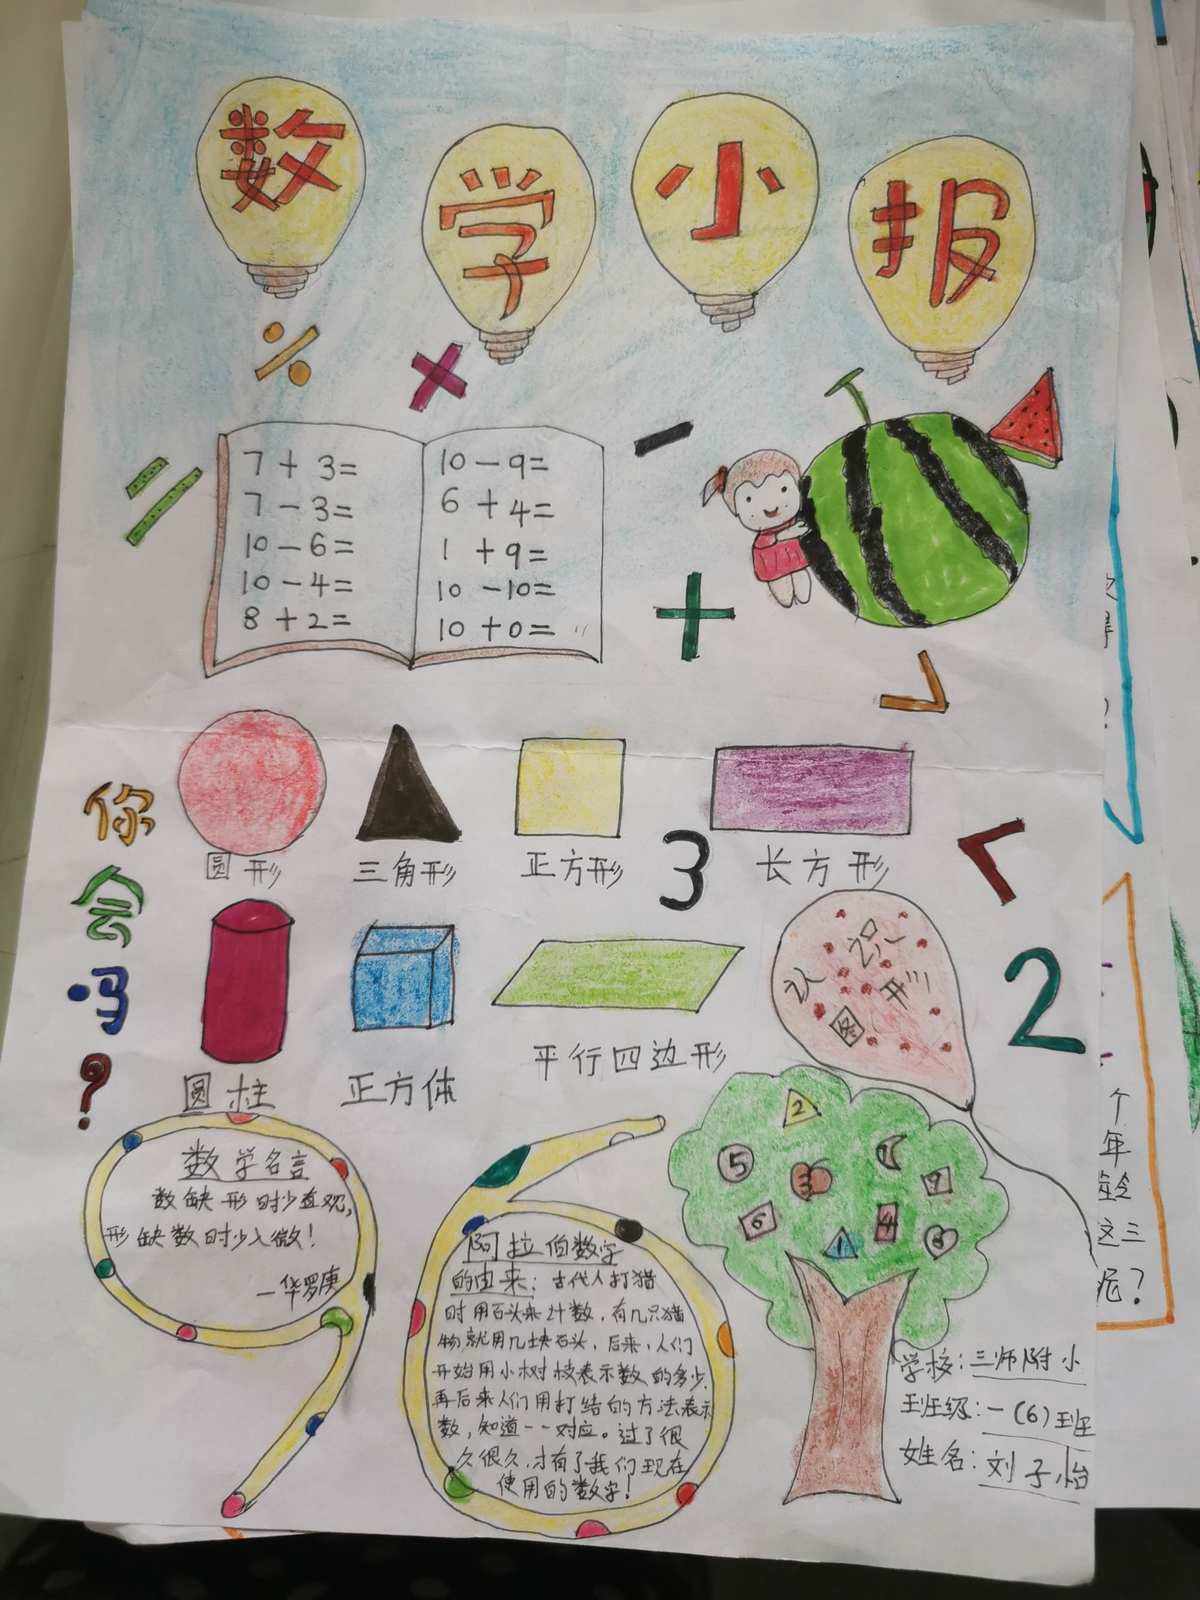 数学小报
7+3=
7-3=
10-6=
10-4=
8+2=
10-9=
6+4=
1+9=
10-10=
10+0=
你会吗?
圆形
三角形
正方形
长方形
3
圆柱
正方体
平行四边形
认识图形
2
数学名言
数缺形时少直观,
形缺数时少入微!
—华罗庚
阿拉伯数字
的由来:古代人打猎
时用石头来计数,有几只猎
物,就用几块石头,后来,人们
开始用小树枝表示数的多少.
再后来人们用打结的方法表示
数,知道一一对应。过了很
久很久,才有了我们现在
使用的数字!
2
5
3
6
1
4
学校:三师附小
班级:一(6)班
姓名:刘子怡
个
年
龄
这三
呢?